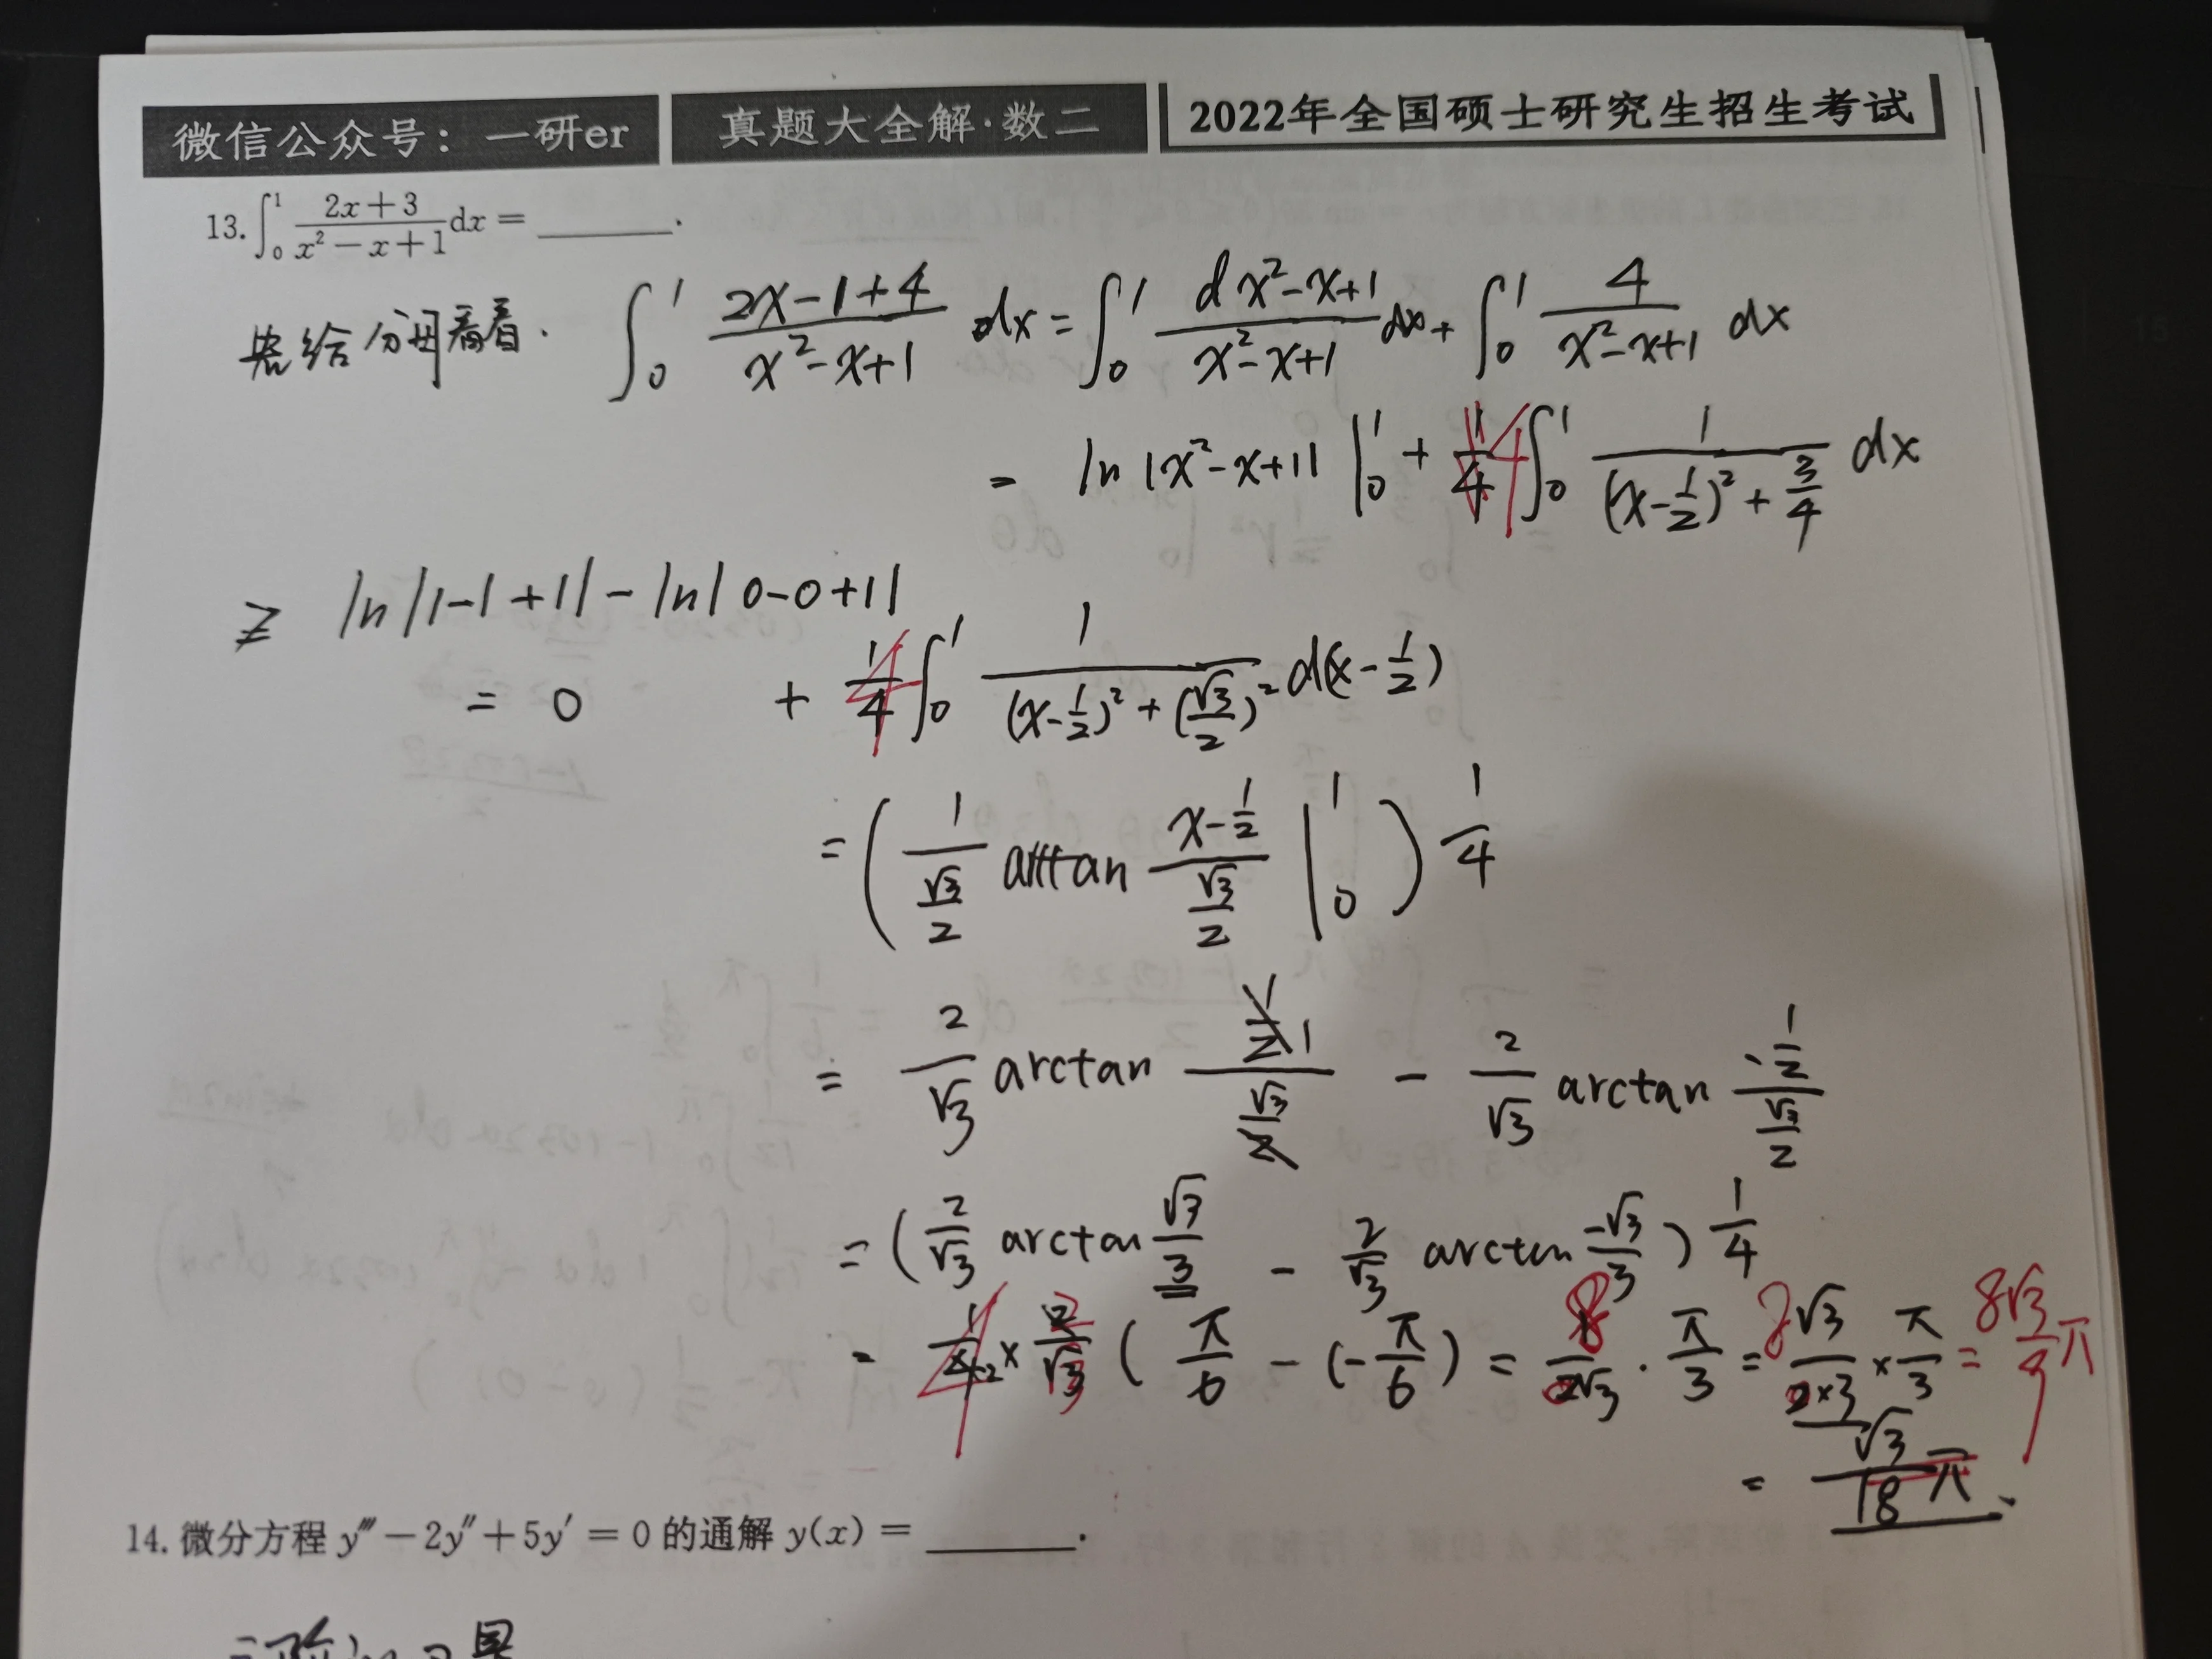 微信公众号：一研er 真题大全解·数二 2022年全国硕士研究生招生考试
13. ∫₀¹ (2x+3)/(x²−x+1) dx = ______.
给分母看看. ∫₀¹ (2x−1+4)/(x²−x+1) dx = ∫₀¹ (d x²−x+1)/(x²−x+1) dx + ∫₀¹ 4/(x²−x+1) dx
= ln|x²−x+1| |₀¹ + 1/4 4 ∫₀¹ 1/((x−1/2)²+3/4) dx
ln|1−1+1| − ln|0−0+1|
= 0 + 1/4 4 ∫₀¹ 1/((x−1/2)²+(√3/2)²) d(x−1/2)
= (1/(√3/2) arctan (x−1/2)/(√3/2) |₀¹) 1/4
= 2/√3 arctan 1/√3 − 2/√3 arctan (−1/2)/(√3/2)
= (2/√3 arctan √3/3 − 2/√3 arctan −√3/3) 1/4
= 1/4 4 × 2/√3 (π/6 − (−π/6)) = 8/√3 · π/3 = 8√3/3 × π/3 = 8√3/9 π
= √3/18 π.
14. 微分方程 y‴ − 2y″ + 5y′ = 0 的通解 y(x) = ______.